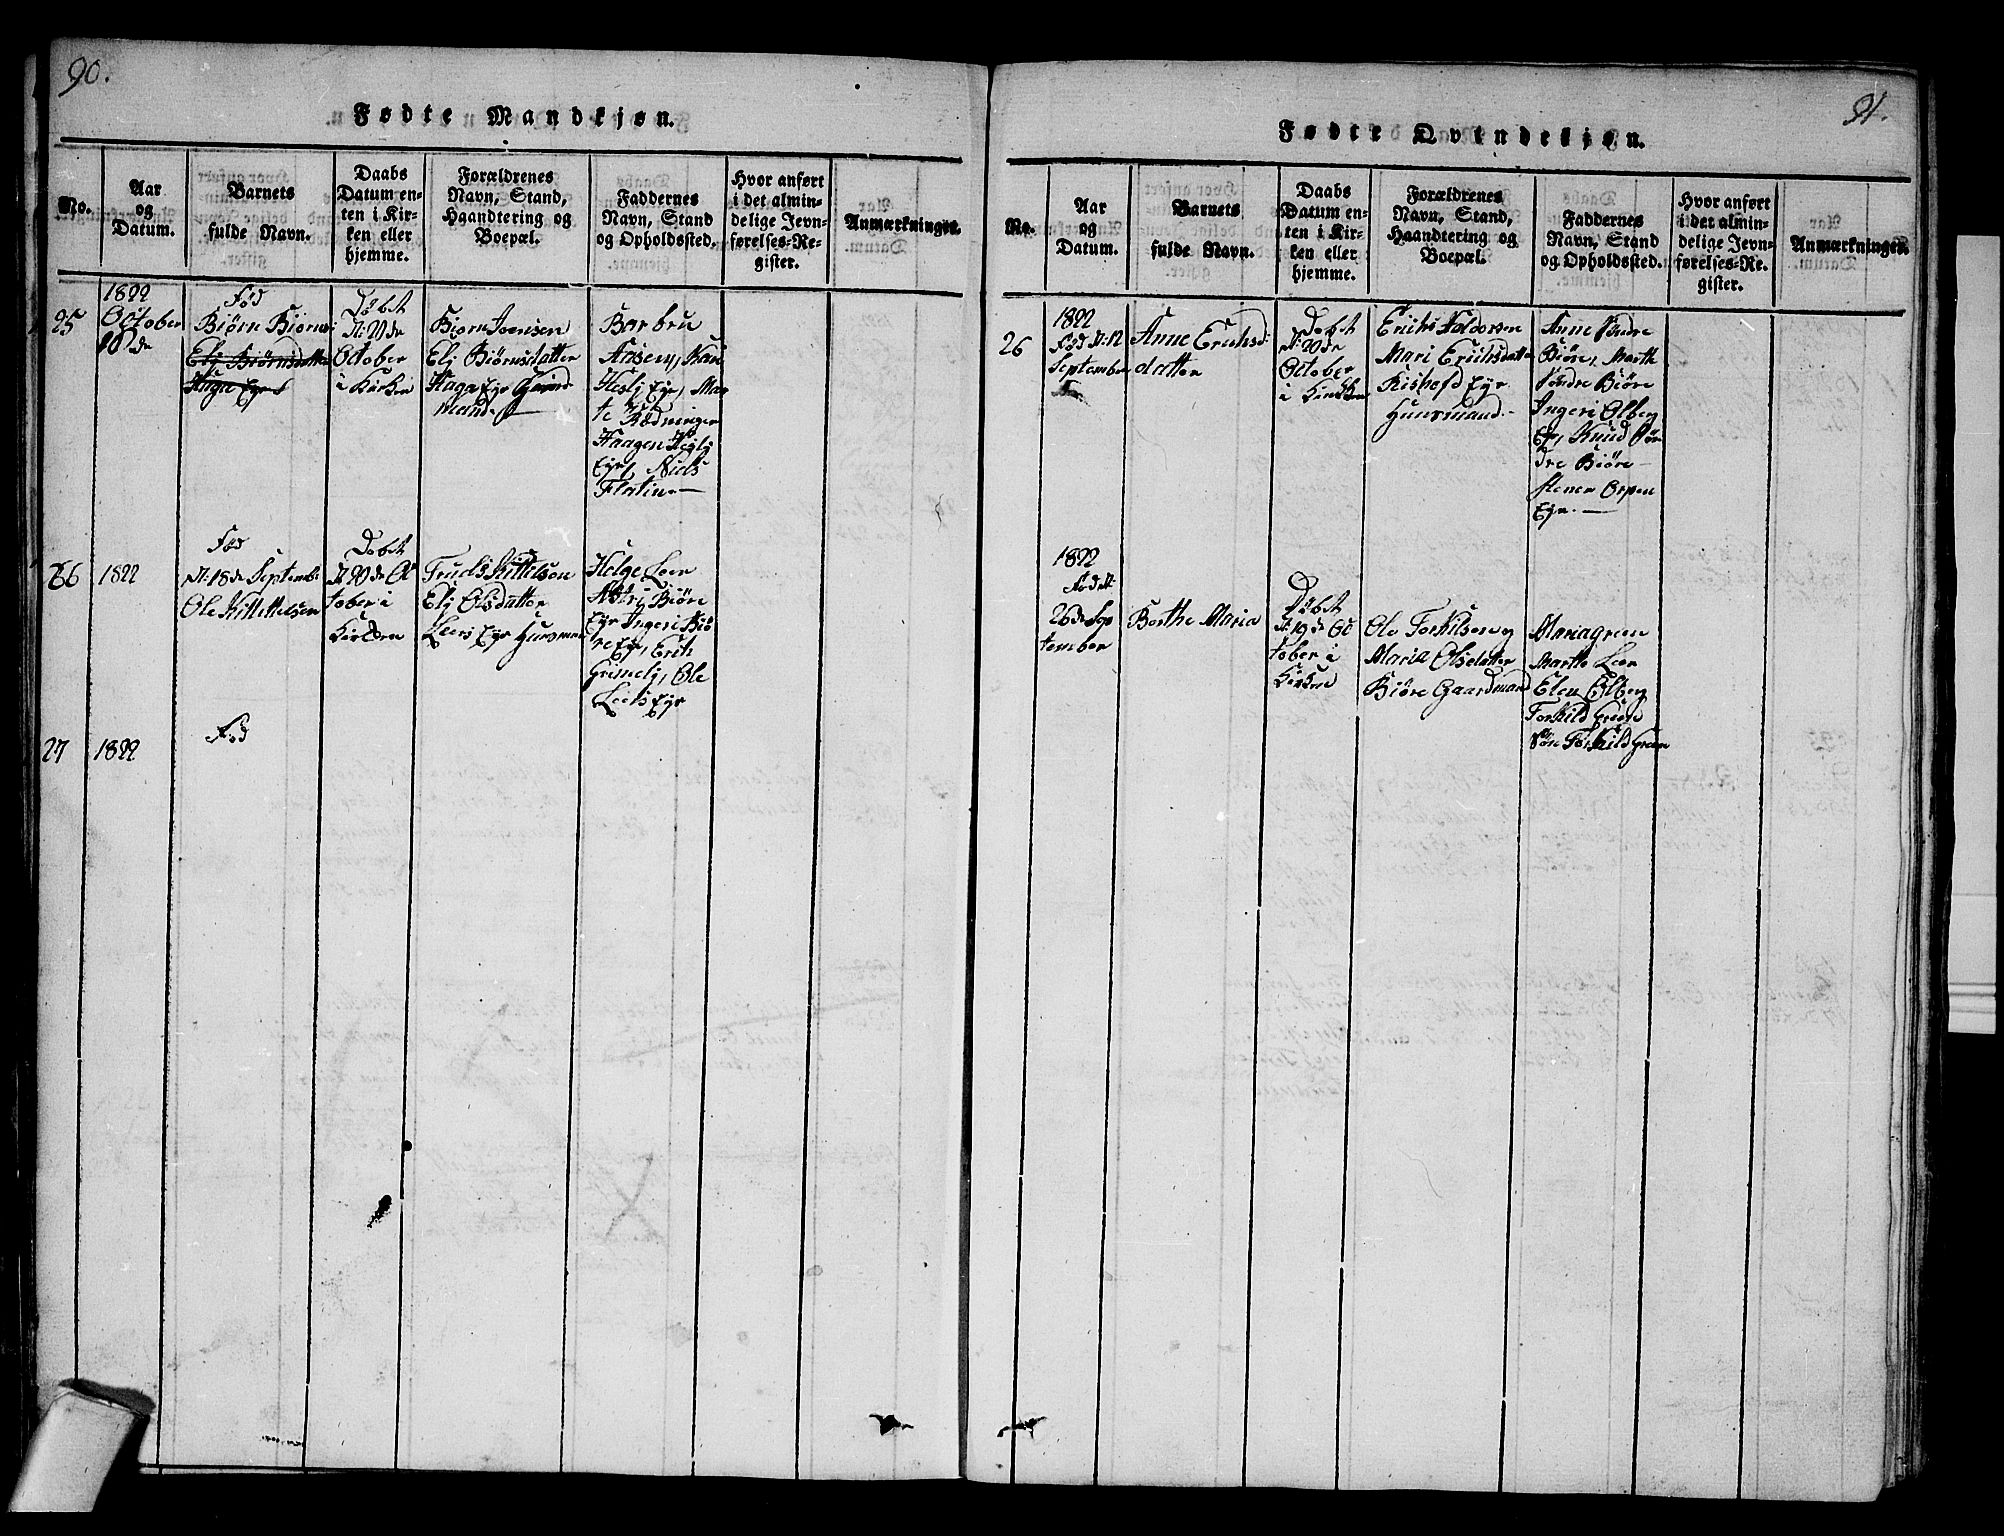 90.
Fødte Mandkjøn.
No.
Aar
og
Datum.
Barnets
fulde Navn.
Daabs
Datum en-
ten i Kir-
ken eller
hjemme.
Forældrenes
Navn, Stand,
Haandtering og
Boepæl.
Faddernes
Navn, Stand
og Opholdssted.
Hvor anført
i det almin-
delige Jevn-
førelses-Re-
gister.
Anmærkninger.
25
1822
October
10de
Fød
Biørn Biørns:
Elj Biørnsdatter
Haga Eger
Døbt
d: 20de
October
i Kirken
Biørn Joensen
Elj Biørnsdatter
Haga Egr
mand
Barbru
Aasem,
Heslj Egr, Mar
te Rødningen
Haagen Heglj
Egr, Niels
Flatin
26
1822
Fød
d: 18de Septembr
Ole Kittelsen
Døbt
d: 20de Oc
tober i
Kirken
Truels Kittelsøn
Elj Olsdatter
Leers Egr Huusman
Helge Leer
Astri Biøre
Egr Ingeri Biø
re Egr, Erich
Grimelj, Ole
Leers Egr
27
1822
Fød
91.
Fødte Qvindekjøn.
No.
Aar
og
Datum.
Barnets
fulde Navn.
Daabs
Datum en-
ten i Kir-
ken eller
hjemme.
Forældrenes
Navn, Stand,
Haandtering og
Boepæl.
Faddernes
Navn, Stand
og Opholdssted.
Hvor anført
i det almin-
delige Jevn-
førelses-Re-
gister.
Anmærkninger.
26
1822
Fød d: 12
September
Anne Erichsd:
datter
Døbt
d: 20de
October
i Kirken
Erich Haldorsen
Mari Erichsdatter
Egr
Huusmand
Anne Søndre
Biøre, Marth
Søndre Biøre
Ingeri Olberg
Egr, Knud Søn
dre Biøre
Stener Ospen
Egr.
1822
Fød d:
26de Sep
tember
Berthe Maria
Døbt
d: 19de Oc
tober i
Kirken
Ole Torkilsen og
Maria Olsdatter
Biøre Gaardmand
Maria Green
Marthe Leer
Elen Olberg
Torkild Green
Torkild Green